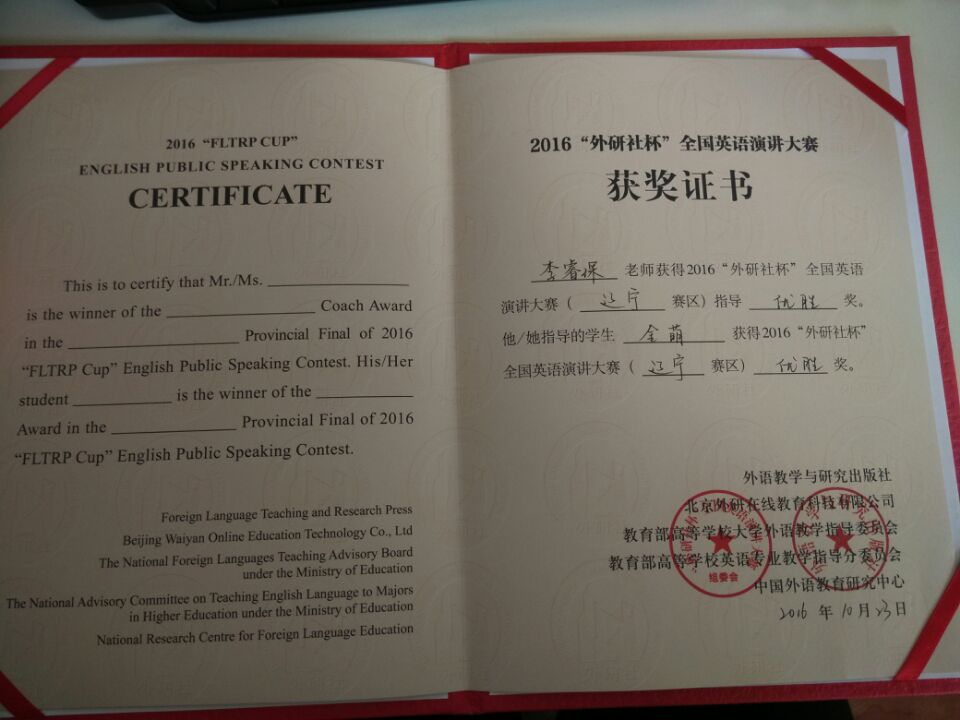 2016 “FLTRP CUP”
ENGLISH PUBLIC SPEAKING CONTEST
CERTIFICATE
This is to certify that Mr./Ms. ____________
is the winner of the ____________ Coach Award
in the ____________ Provincial Final of 2016
“FLTRP Cup” English Public Speaking Contest. His/Her
student ____________ is the winner of the ____________
Award in the ____________ Provincial Final of 2016
“FLTRP Cup” English Public Speaking Contest.
Foreign Language Teaching and Research Press
Beijing Waiyan Online Education Technology Co., Ltd
The National Foreign Languages Teaching Advisory Board
under the Ministry of Education
The National Advisory Committee on Teaching English Language to Majors
in Higher Education under the Ministry of Education
National Research Centre for Foreign Language Education
2016“外研社杯”全国英语演讲大赛
获奖证书
李睿保 老师获得2016“外研社杯”全国英语
演讲大赛（ 辽宁 赛区）指导 优胜 奖。
他/她指导的学生 金萌 获得2016“外研社杯”
全国英语演讲大赛（ 辽宁 赛区） 优胜 奖。
外语教学与研究出版社
北京外研在线教育科技有限公司
教育部高等学校大学外语教学指导委员会
教育部高等学校英语专业教学指导分委员会
中国外语教育研究中心
2016 年 10 月 23 日
组委会